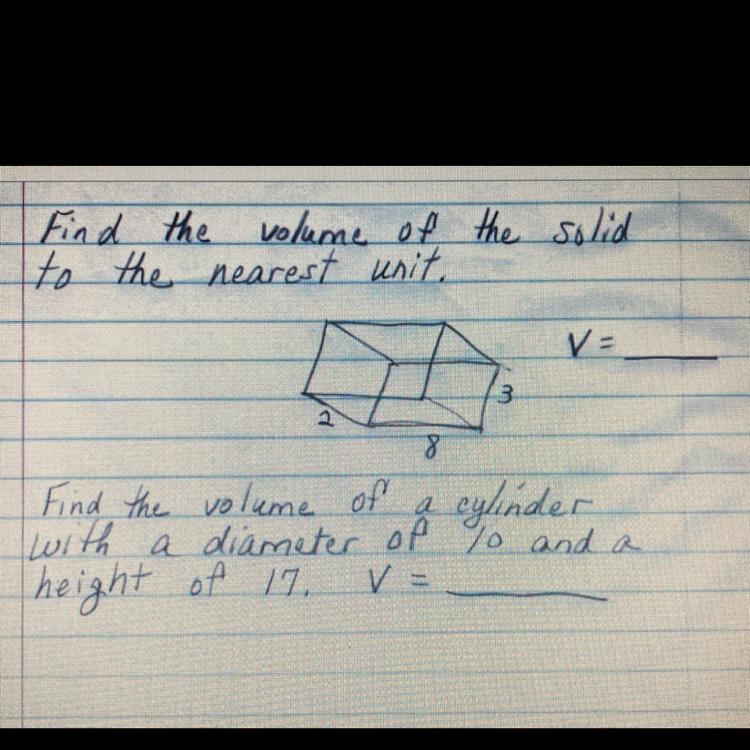 Find the volume of the solid
to the nearest unit.
V = ____
3
2
8
Find the volume of a cylinder
with a diameter of 10 and a
height of 17. V = ____